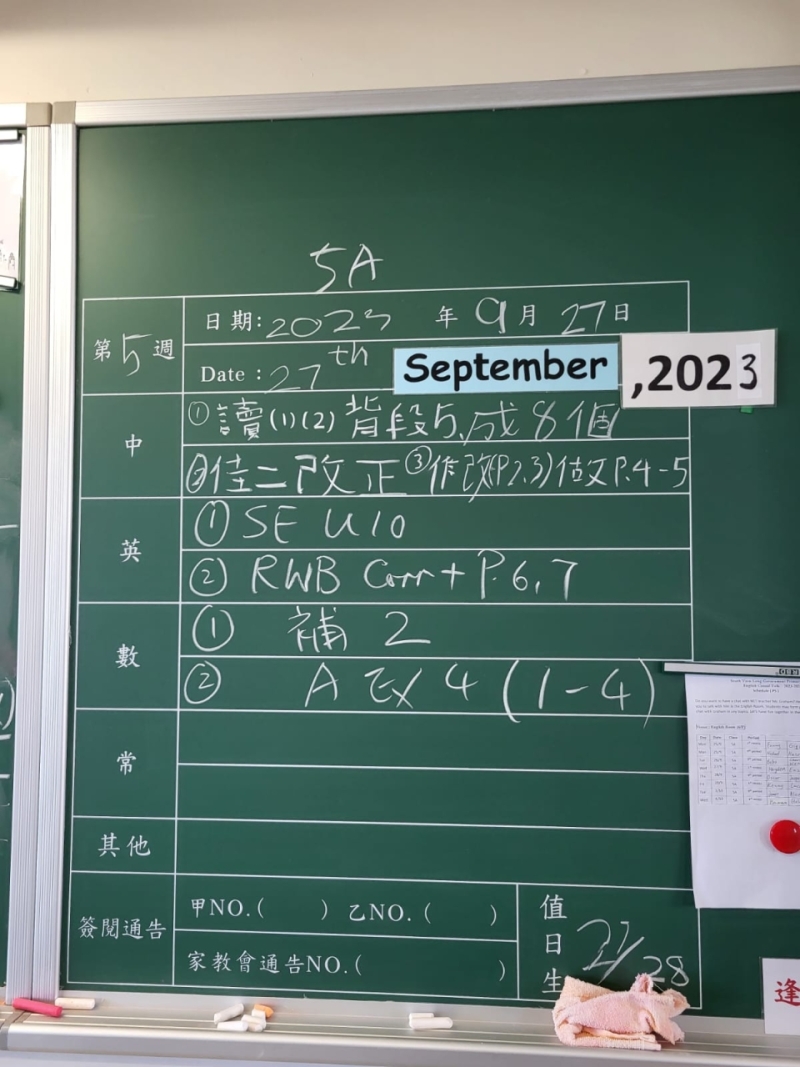 5A
第5週
日期: 2023 年 9月 27日
Date : 27th September ,2023
中
① 讀(1)(2) 背段5,成8個
② 佳二改正 ③作改(P2.3) 估文P.4-5
英
① SE U10
② RWB Corr + P.6,7
數
① 補 2
② A Ex 4 (1-4)
常
其他
簽閱通告
甲NO.( ) 乙NO.( )
家教會通告NO.( )
值日生 27/28
逢